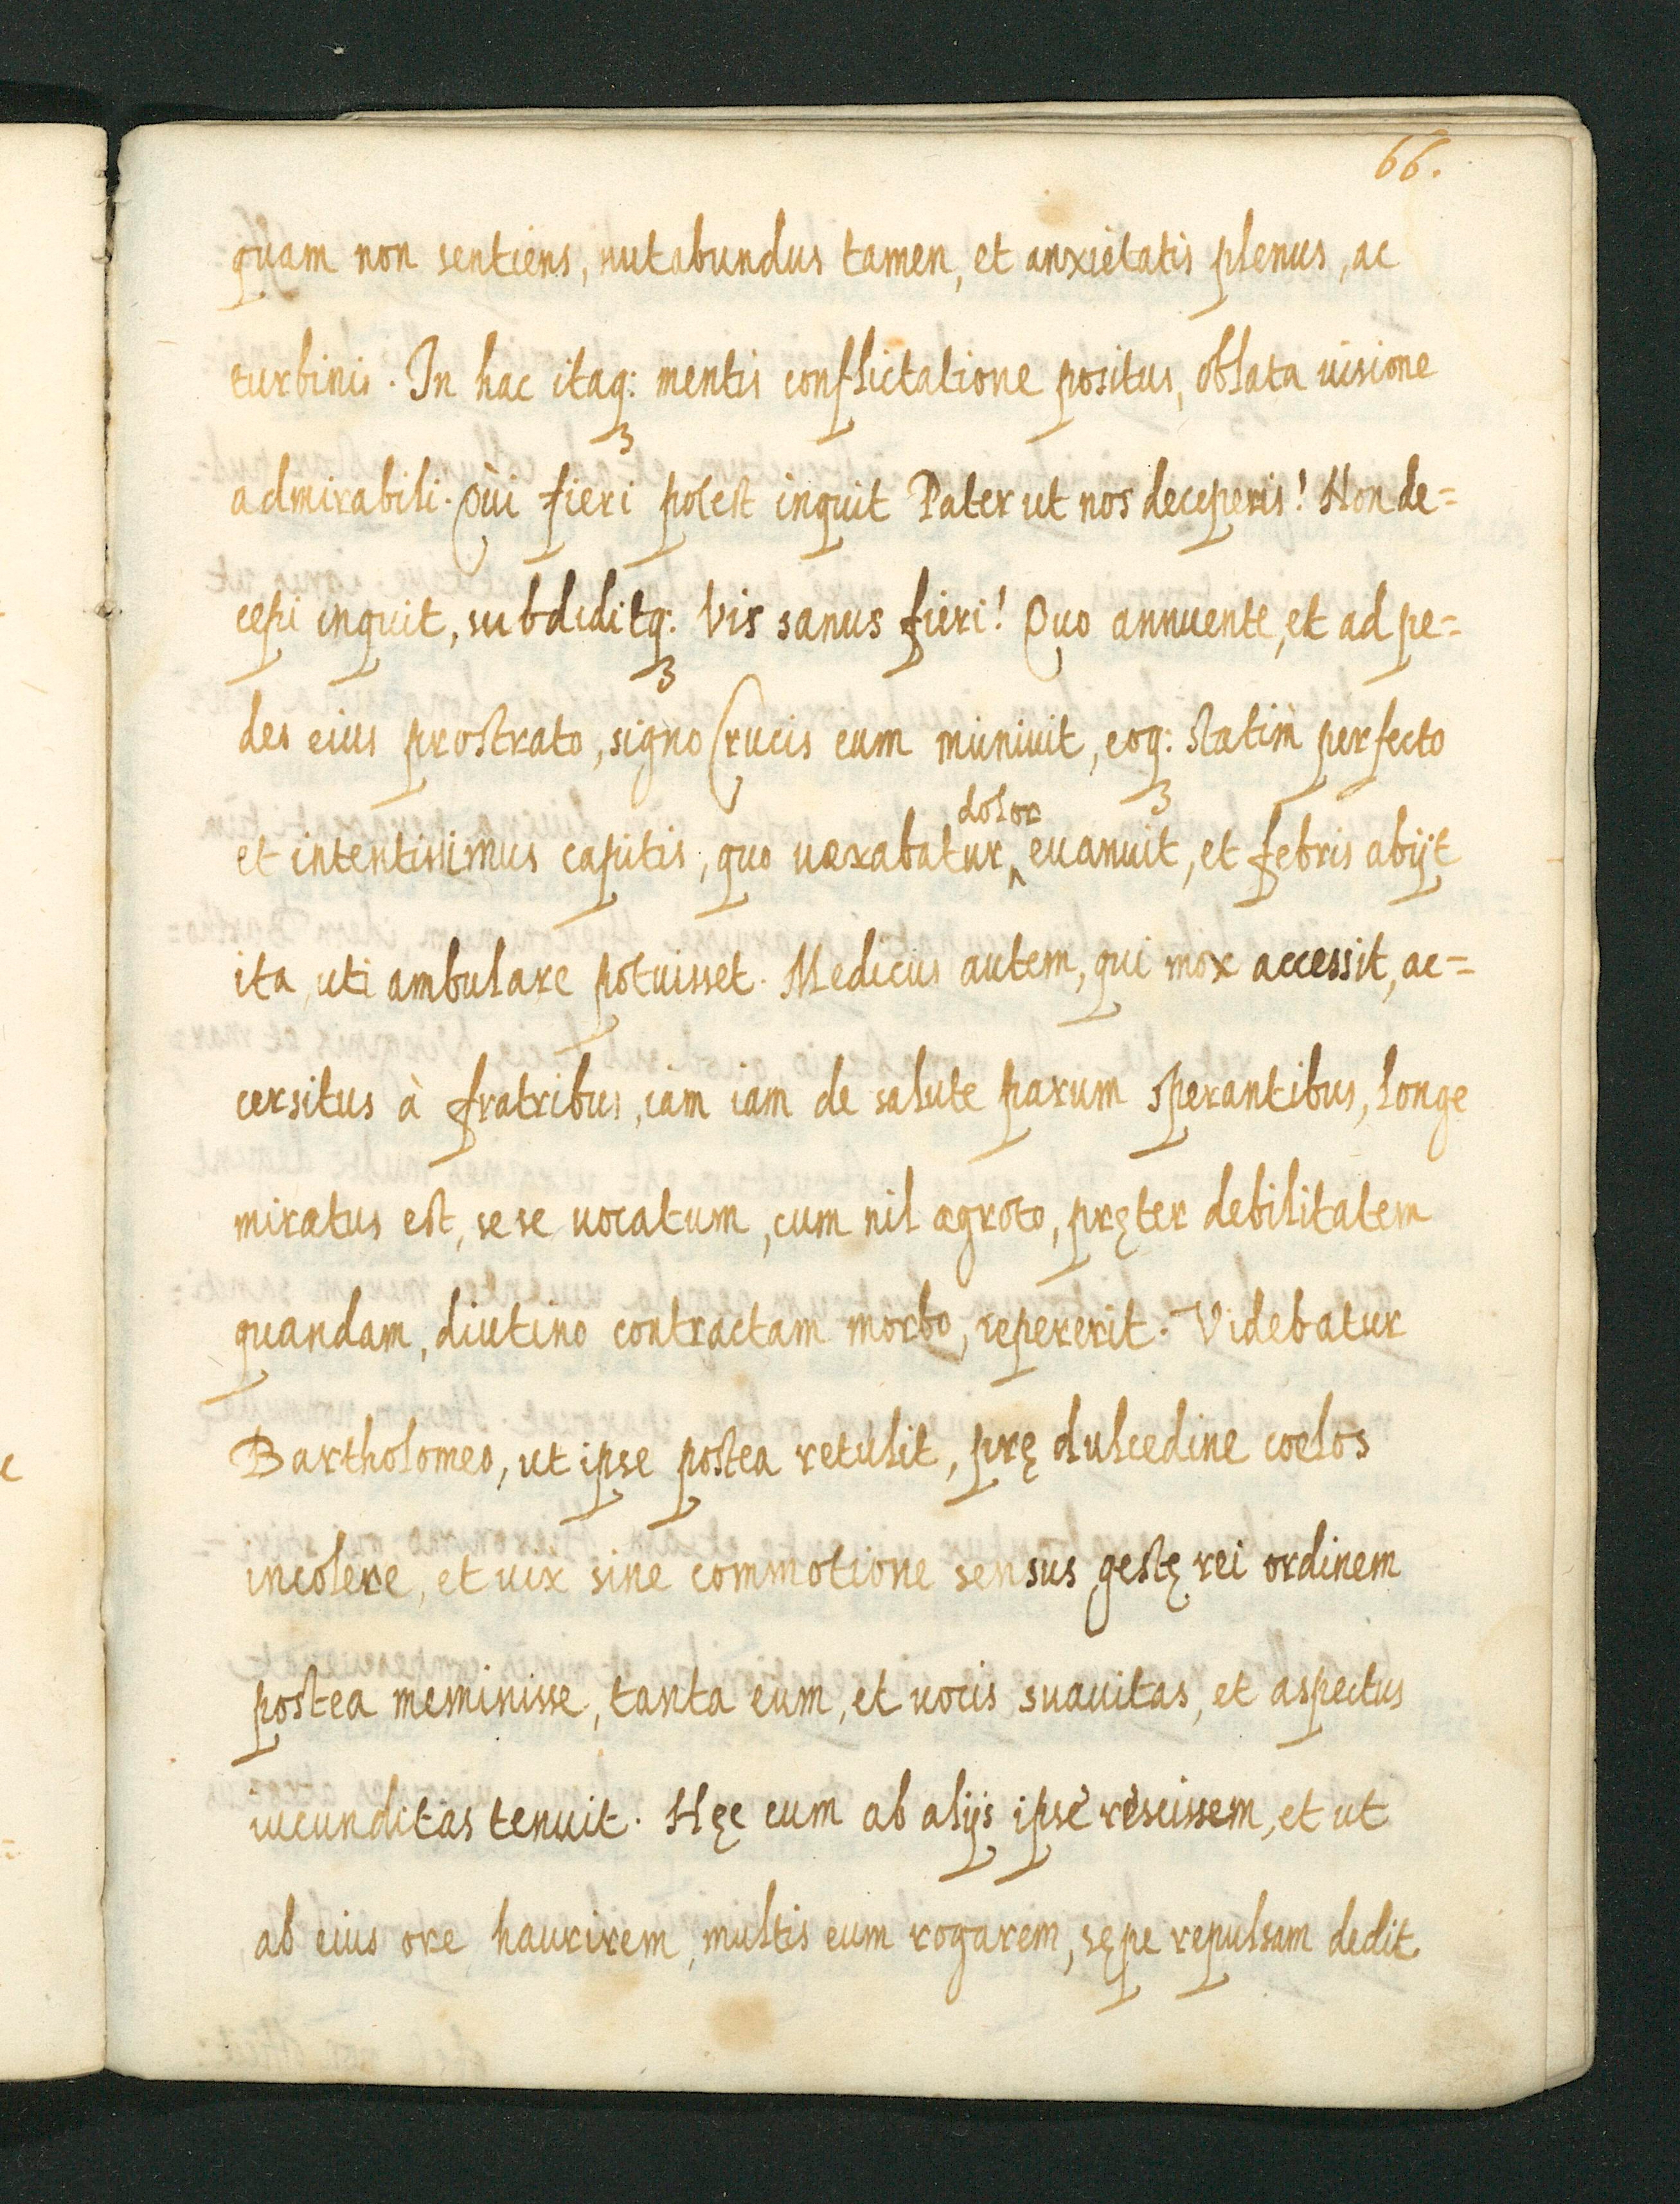 66.
quam non sentiens, nutabundus tamen, et anxietatis plenus, ac
turbinis. In hac itaq: mentis conflictatione positus, oblata uisione
admirabili. Qùi fieri potest inquit Pater ut nos deceperis! Non de=
cepi inquit, subdiditq: Vis sanus fieri! Quo annuente, et ad pe=
des eius prostrato, signo Crucis eum muniuit, eoq: statim perfecto
dolor
et intentissimus capitis, quo uexabatur ^ euanuit, et febris abijt
ita, uti ambulare potuisset. Medicus autem, qui mox accessit, ac=
cersitus à fratribus, iam iam de salute parum sperantibus, longe
miratus est, se se uocatum, cum nil ægroto, pręter debilitatem
quandam, diutino contractam morbo, repererit. Videbatur
Bartholomeo, ut ipse postea retulit, prę dulcedine coelos
incolere, et uix sine commotione sensus gestę rei ordinem
postea meminisse, tanta eum, et uocis suauitas, et aspectus
iucunditas tenuit. Hęc cum ab alijs ipse rescissem, et ut
ab eius ore haurirem, multis eum rogarem, sępe repulsam dedit